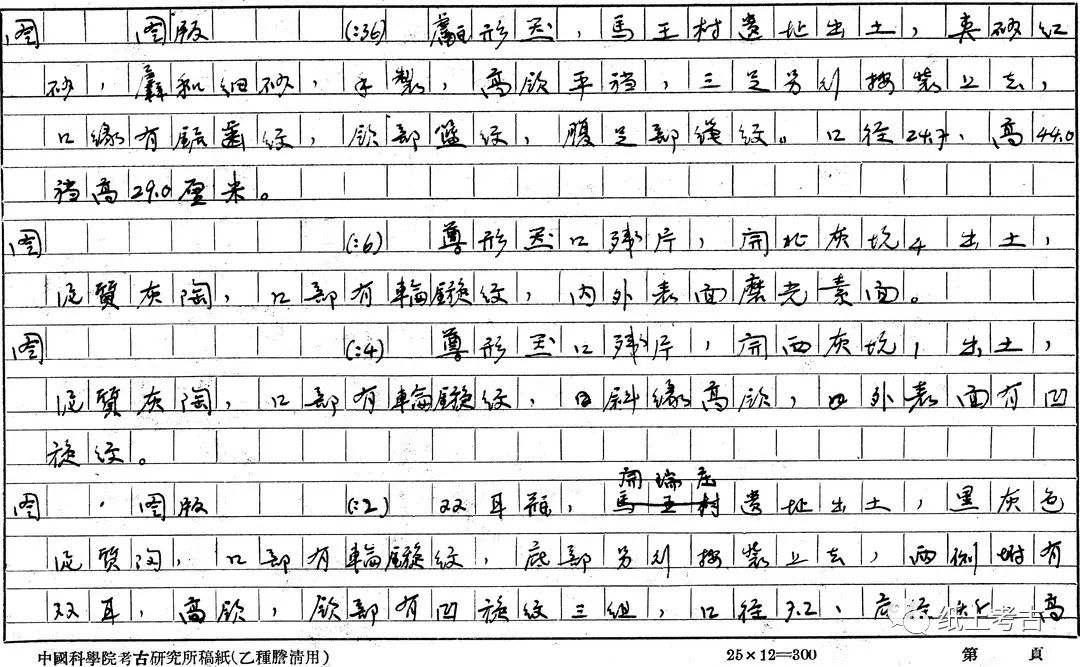 图 图版 (:36) 斝形器,馬王村遺址出土,夹砂红
砂,羼和细砂,手製,高欵平裆,三足另外按装上去,
口缘有鋸齒纹,欵部籃纹,腹足部绳纹。口径24.7,高44.0
裆高29.0厘米。
图 (:6) 尊形器口残片,開北灰坑4出土,
泥質灰陶,口部有輪鏇纹,内外表面磨光素面。
图 (:4) 尊形器口残片,開西灰坑1出土,
泥質灰陶,口部有輪鏇纹,斜缘高欵,外表面有凹
旋纹。
開瑞庄
图 , 图版 (:2) 双耳瓶,馬王村遺址出土,黑灰色
泥質陶,口部有輪鏇纹,底部另外按装上去,两側附有
双耳,高欵,欵部有凹旋纹三组,口径7.2、底径 高
中國科學院考古研究所稿紙(乙種謄清用) 25×12=300 第 頁
纸上考古